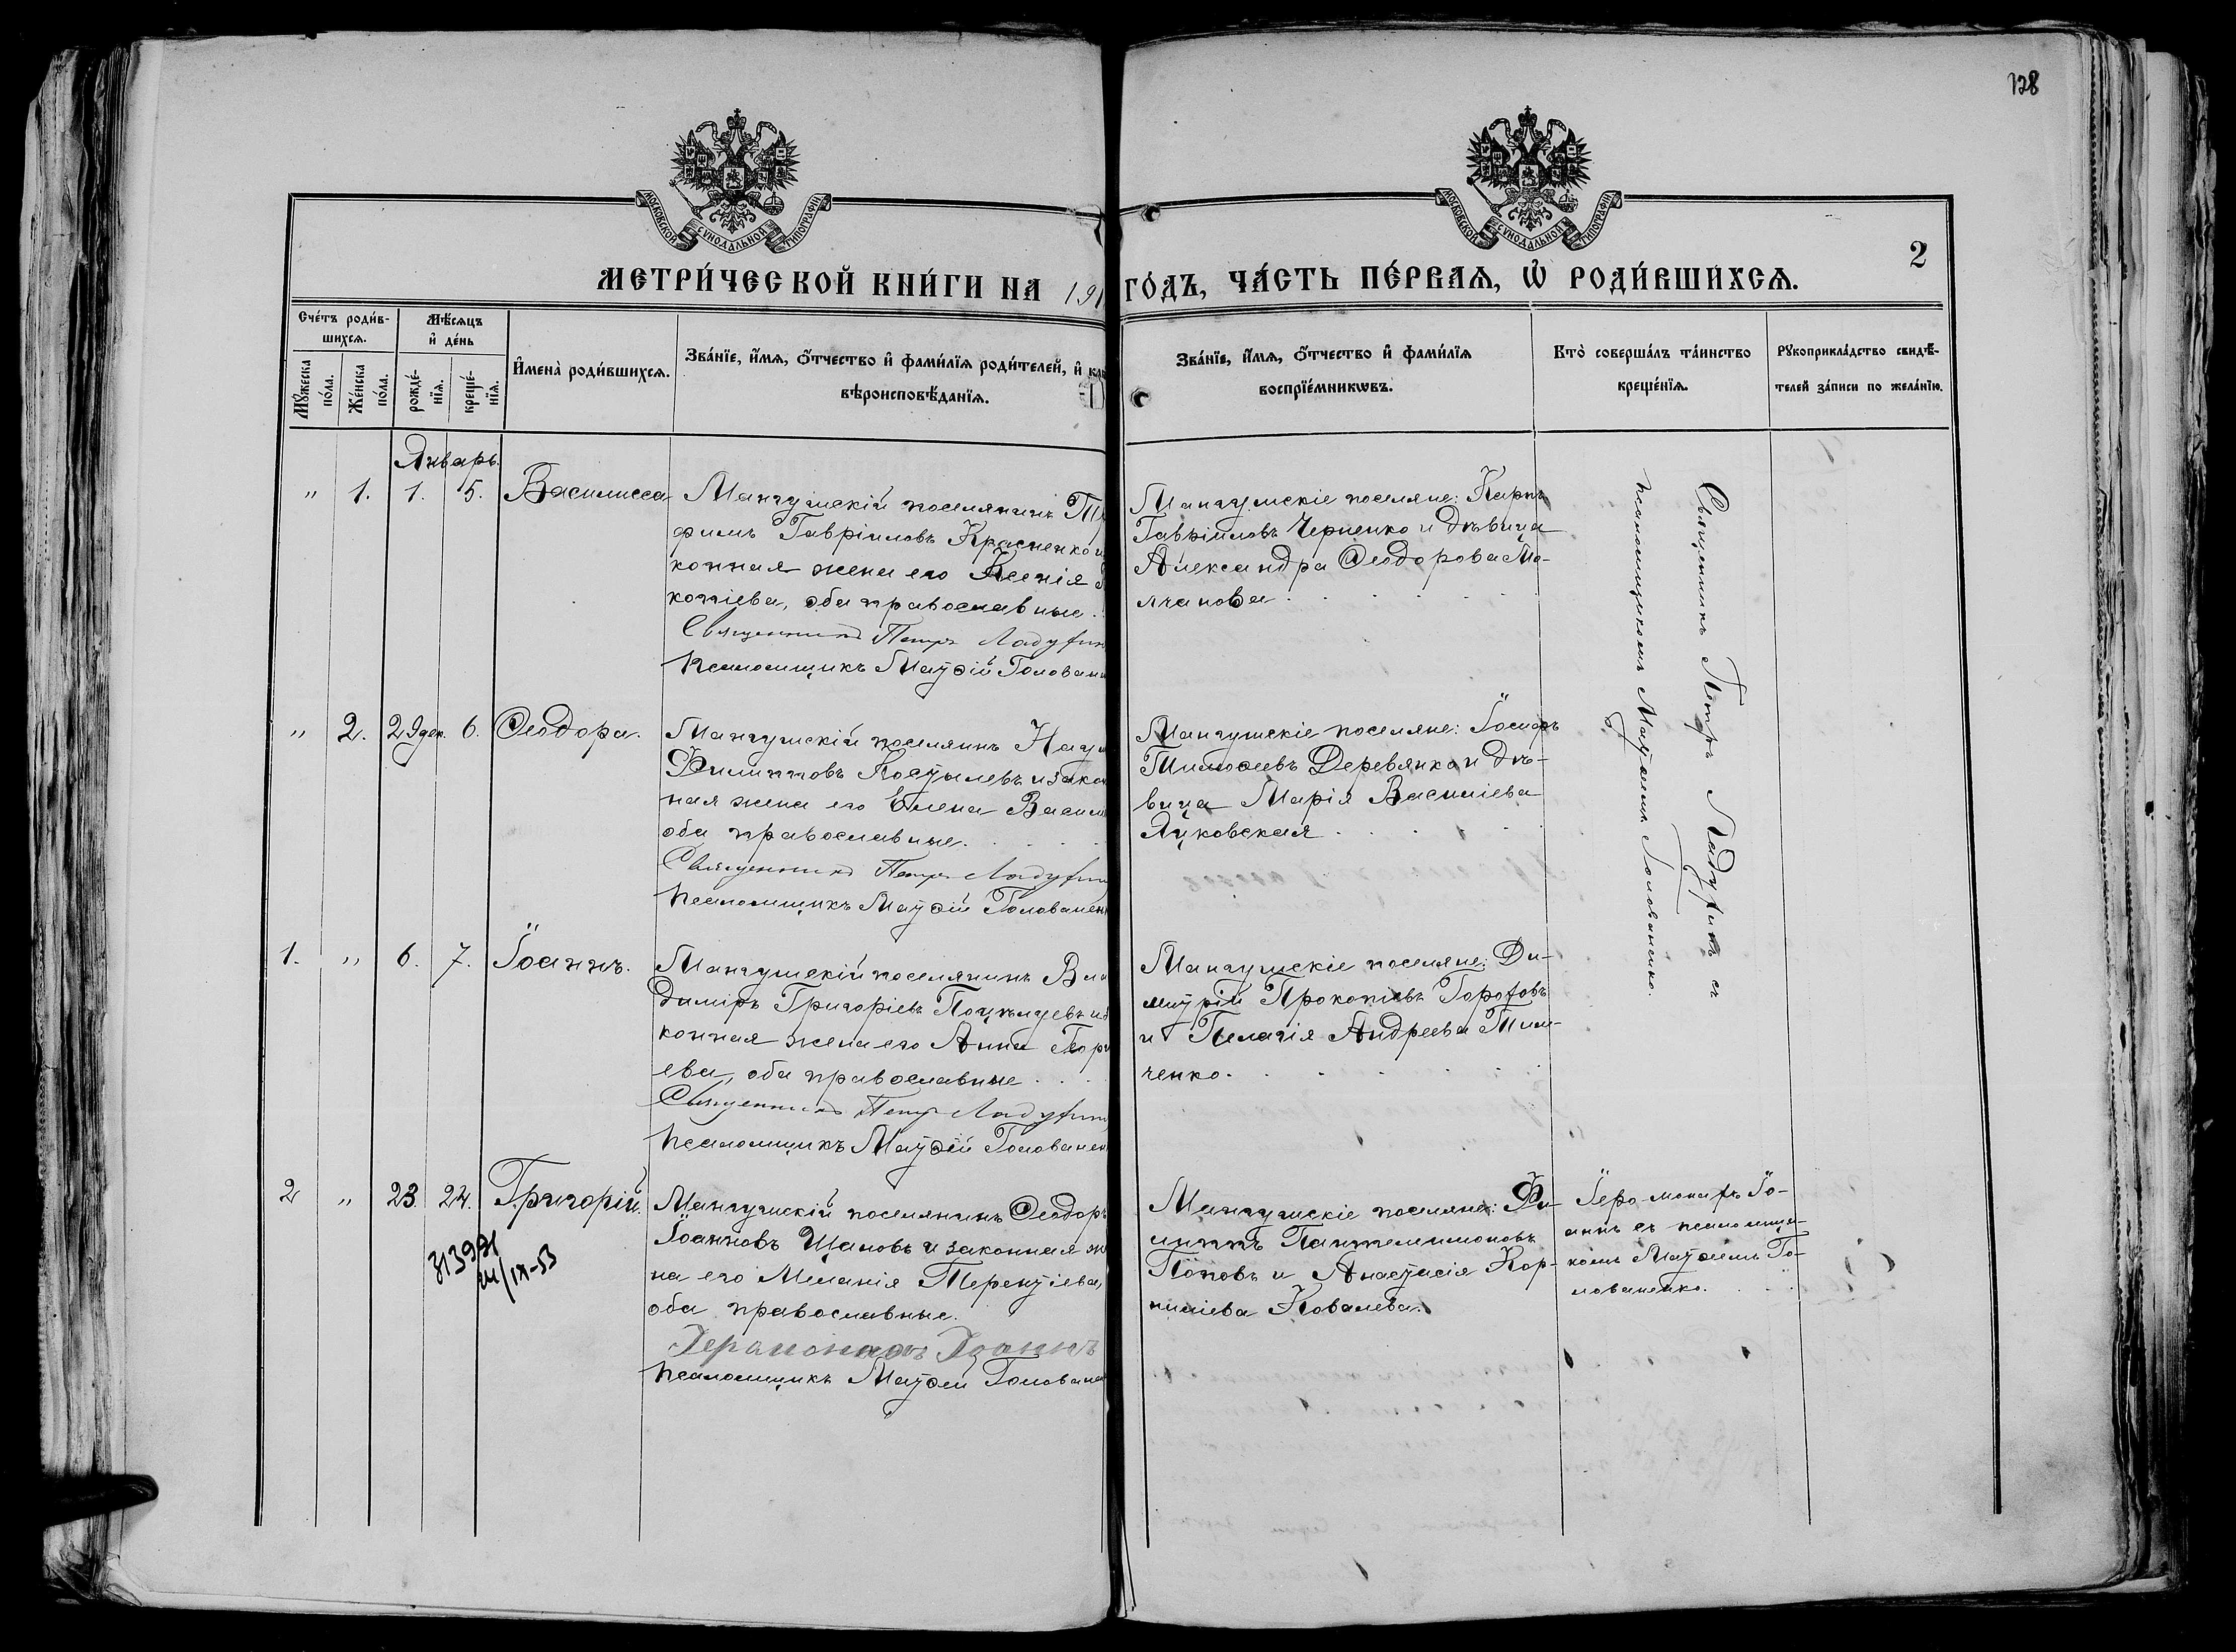 128
МОСКОВСКОЙ СѴНОДАЛЬНОЙ ТИПОГРАФІИ
МОСКОВСКОЙ СѴНОДАЛЬНОЙ ТИПОГРАФІИ
2
МЕТРИ́ЧЕСКОЙ КНИ́ГИ НА 191 ГО́ДЪ, ЧА́СТЬ ПЕ́РВАѦ, Ѡ҆ РОДИ́ВШИХСѦ.
Сче́тъ роди́в-
шихсѧ.
Мꙋ́жеска по́ла.
Же́нска по́ла.
Мѣ́сѧцъ
и҆ де́нь
рожде́-
нїѧ.
креще́-
нїѧ.
И҆мена̀ роди́вшихсѧ.
Зва́нїе, и҆́мѧ, ѻ҆́тчество и҆ фами́лїѧ роди́телей, и҆
вѣроисповѣ́данїѧ.
Зва́нїе, и҆́мѧ, ѻ҆́тчество и҆ фами́лїѧ
воспрїе́мникѡвъ.
Кто̀ соверша́лъ та́инство
креще́нїѧ.
Рꙋкоприкла́дство свидѣ́-
телей за́писи по жела́нїю.
Январь.
" 1. 1. 5. Василисса
Мангушскій поселянинъ
фимъ Гавріиловъ Красненко и
конная жена его Ксенія
копіева, оба православные.
Священникъ Петръ Ладухин
Псаломщикъ Матѳій Голован
Мангушскіе поселяне: Карпъ
Гавріиловъ Черненко и дѣвица
Александра Ѳеодорова Мо-
лчанова
Священникъ Петръ Ладухинъ съ
псаломщикомъ Матѳеемъ Голованенко.
" 2. 29 дек. 6. Ѳеодора.
Мангушскій поселянинъ Наум
Филипповъ Костылевъ и закон
ная жена его Елена Васил
оба православные.
Священникъ Петръ Ладухин
Псаломщикъ Матѳій Голованен
Мангушскіе поселяне: Іосифъ
Тимоѳеевъ Деревянко и дѣ-
вица Марія Василіева
Яцковская
1. " 6. 7. Іоаннъ.
Мангушскій поселянинъ Вла
диміръ Григоріевъ
конная жена его Анна Георг
ева, оба православные
Священникъ Петръ Ладухин
Псаломщикъ Матѳій Голованен
Мангушскіе поселяне: Ди-
митрій Прокопіевъ Гороховъ
и Пелагія Андреева Тим-
ченко.
2 " 23. 24. Григорій.
Мангушскій поселянинъ Ѳеодоръ
Іоанновъ Щаповъ и законная же
на его Меланія Терентіева,
оба православные.
Іеромонахъ Іоаннъ
Псаломщикъ Матѳей Голована
Мангушскіе поселяне: Фи-
липпъ Пантелеимоновъ
Поповъ и Анастасія Кор-
ниліева Ковалева.
Іеромонахъ Іо-
аннъ съ псаломщи-
комъ Матѳеемъ Го-
лованенко.